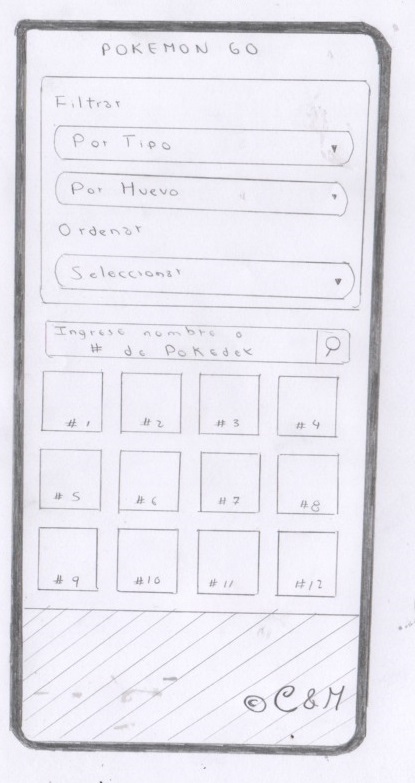 POKEMON GO
Filtrar
Por Tipo
Por Huevo
Ordenar
Seleccionar
Ingrese nombre o
# de Pokedex
#1 #2 #3 #4
#5 #6 #7 #8
#9 #10 #11 #12
© C&M